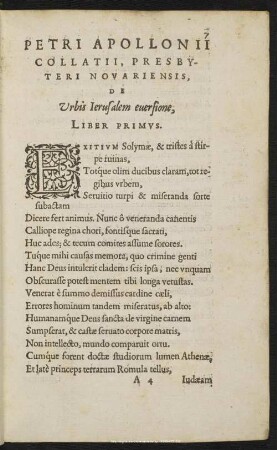 7
PETRI APOLLONII
COLLATII, PRESBY-
TERI NOVARIENSIS,
DE
Urbis Ierusalem euersione,
LIBER PRIMVS.
EXITIVM Solymæ, & tristes à stir-
pe ruinas,
Totque olim ducibus claram, tot re-
gibus vrbem,
Seruitio turpi & miseranda sorte
subactam
Dicere fert animus. Nunc ô veneranda canentis
Calliope regina chori, fontisque sacrati,
Huc ades; & tecum comites assume sorores.
Tuque mihi causas memora, quo crimine genti
Hanc Deus intulerit cladem: scis ipsa, nec vnquam
Obscurasse potest mentem tibi longa vetustas.
Venerat è summo demissus cardine cæli,
Errores hominum tandem miseratus, ab alto:
Humanamque Deus sancta de virgine carnem
Sumpserat, & castæ seruato corpore matris,
Non intellecto, mundo comparuit ortu.
Cumque forent doctæ studiorum lumen Athenæ,
Et latè princeps terrarum Romula tellus,
A 4 Iudæam